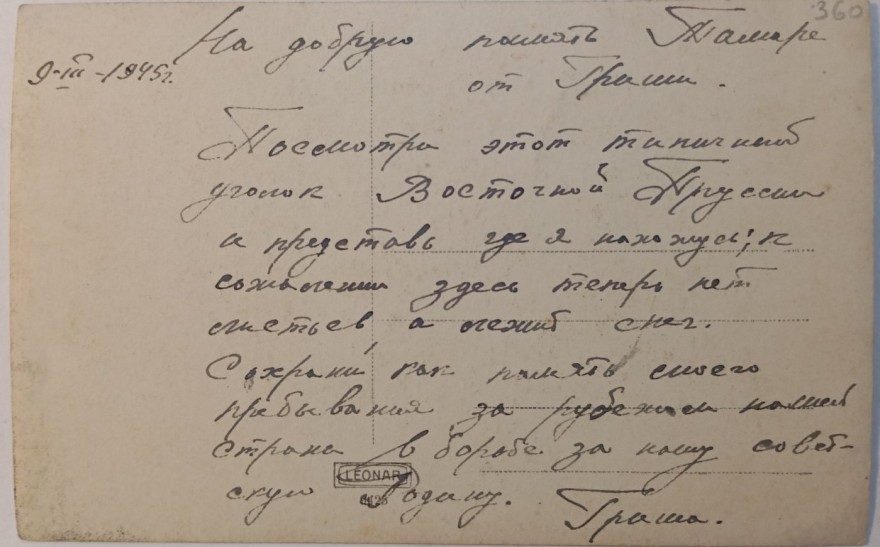 360
На добрую память Тамаре
9-III-1945г.
от Гриши.
Посмотри этот типичный
уголок Восточной Пруссии
и представь где я нахожусь; к
сожалении здесь теперь нет
листьев, а лежит снег.
Сохрани как память моего
пребывания за рубежом нашей
страны в борьбе за нашу совет-
скую Родину.
LEONAR
Гриша.